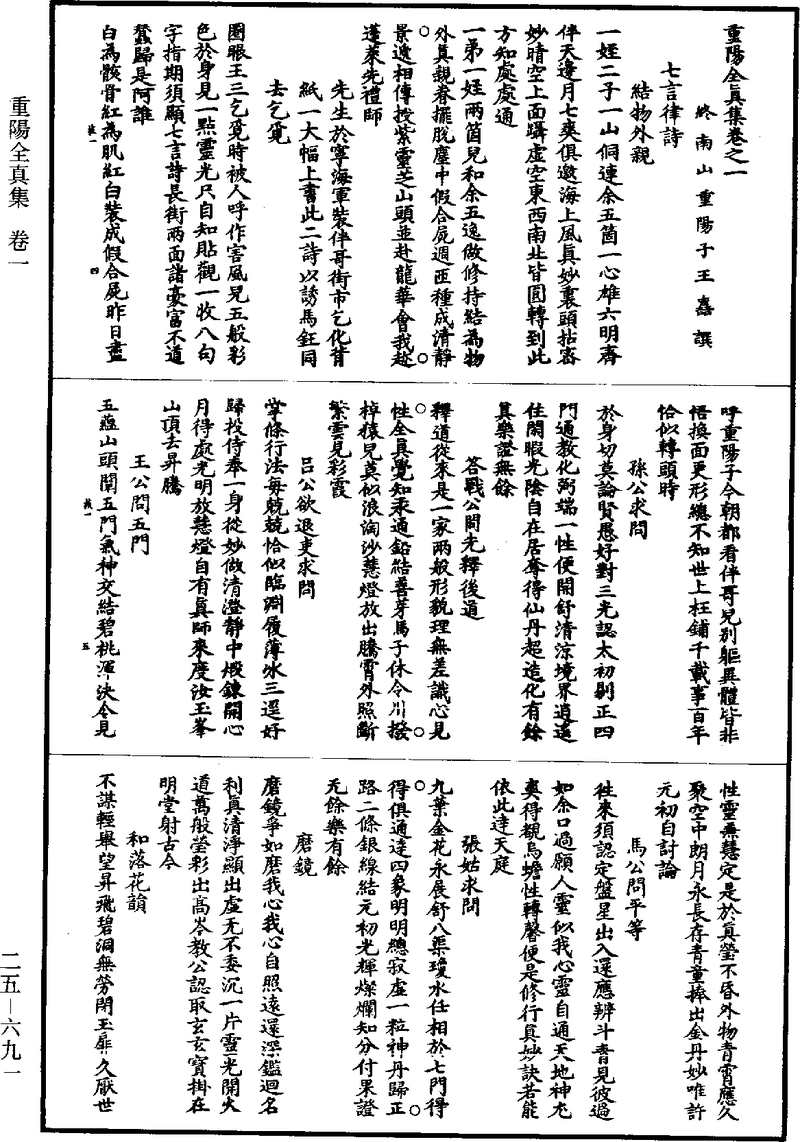 重陽全真集卷之一
終南山重陽子王嚞譔
七言律詩
結物外親
一姪二子一山侗連余五箇一心雄六明齊
伴天邊月七爽俱邀海上風真妙裏頭拈密
妙晴空上面躡虛空東西南北皆圓轉到此
方知處處通
一弟一姪兩箇兒和余五逸做修持結為物
外真親眷擺脫塵中假合屍週匝種成清靜
景遞相傳授紫靈芝山頭並赴龍華會我趂
蓬萊先禮師
先生於寧海軍裝伴哥街市乞化背
紙一大幅上書此二詩以誘馬鈺同
去乞覓
圈眼王三乞覓時被人呼作害風兒五般彩
色於身見一點靈光只自知貼觀一收八句
字指期須顯七言詩長街兩面諸豪富不道
蠶歸是阿誰
白為骸骨紅為肌紅白裝成假合屍昨日盡
呼重陽子今朝都看伴哥兒別軀異體皆非
悟換面更形總不知世上枉鋪千載事百年
恰似轉頭時
孫公求問
於身切莫論賢愚好對三光認太初剔正四
門通教化弼端一性便開舒清涼境界逍遙
住閑暇光陰自在居奪得仙丹超造化有餘
真樂證無餘
答戰公問先釋後道
釋道從來是一家兩般形貌理無差識心見
性全真覺知汞通鉛結善芽馬子休令川撥
棹猿兒莫似浪淘沙慧燈放出騰霄外照斷
紫雲見彩霞
呂公欲退吏求問
掌條行法每兢兢恰似臨淵履薄冰三逕好
歸投侍奉一身從妙做清澄靜中煅鍊開心
月得處光明放慧燈自有真師來度汝玉峯
山頂去昇騰
王公問五門
五蘊山頭闡五門氣神交結碧桃渾決令見
性靈無慧定是於真瑩不昏外物青霄應久
聚空中朗月永長存青童捧出金丹妙唯許
元初自討論
馬公問平等
往來須認定盤星出入還應辨斗杳見彼過
如余口過願人靈似我心靈自通天地神尤
爽得覩烏蟾性轉馨便是修行真妙訣若能
依此達天庭
張姑求問
九葉金花永展舒八渠瓊水任相於七門得
得俱通達四象明明總寂虛一粒神丹歸正
路二條銀線結元初光輝燦爛知分付果證
无餘樂有餘
磨鏡
磨鏡爭如磨我心我心自照遠還深鑑迴名
利真清淨顯出虛无不委沉一片靈光開大
道萬般瑩彩出高岑教公認取玄玄寶掛在
明堂射古今
和落花韻
不謀輕舉望昇飛碧洞無勞閉玉扉久厭世
重陽全真集　卷一
二五—六九一